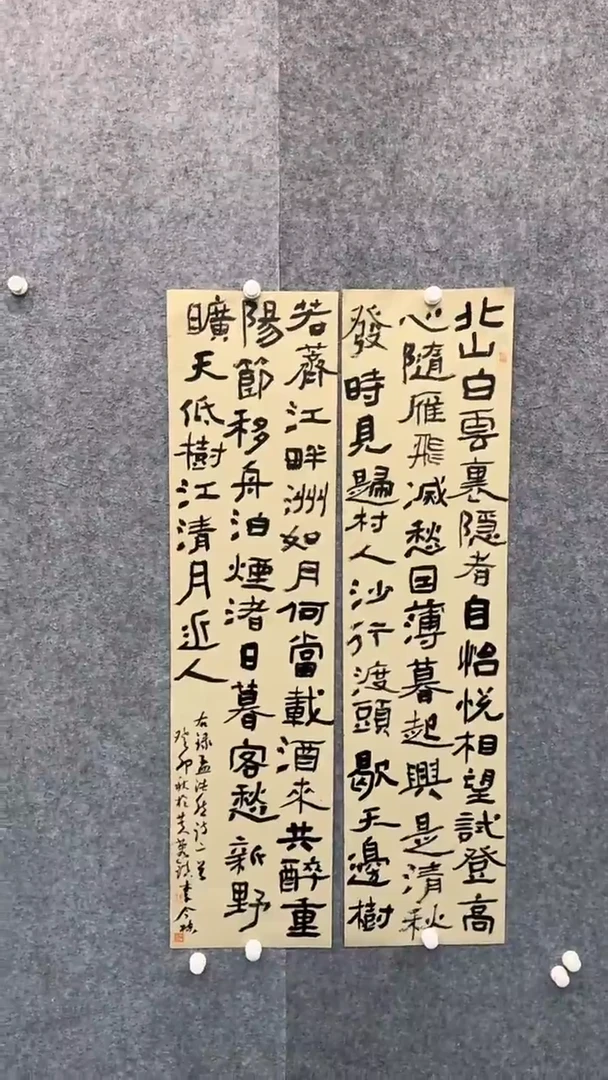 北山白雲裏隱者自怡悅相望試登高
心隨雁飛滅愁因薄暮起興是清秋
發時見歸村人沙行渡頭歇天邊樹
若薺江畔洲如月何當載酒來共醉重
陽節移舟泊煙渚日暮客愁新野
曠天低樹江清月近人
右录孟浩然诗二首
癸卯秋於